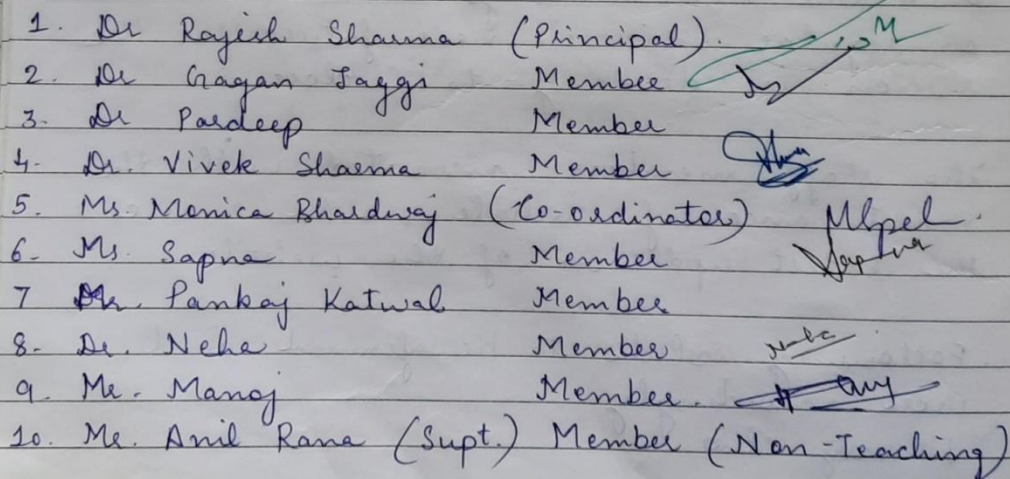 1. Dr Rajesh Sharma (Principal).
2. Dr Gagan Jaggi Member
3. Dr Pardeep Member
4. Dr. Vivek Sharma Member
5. Ms. Monica Bhardwaj (Co-ordinator)
6. Ms. Sapna Member Sapna
7 Mr. Pankaj Katwal Member
8. Dr. Neha Member Neha
9. Mr. Manoj Member.
10. Mr. Anil Rana (Supt.) Member (Non-Teaching)